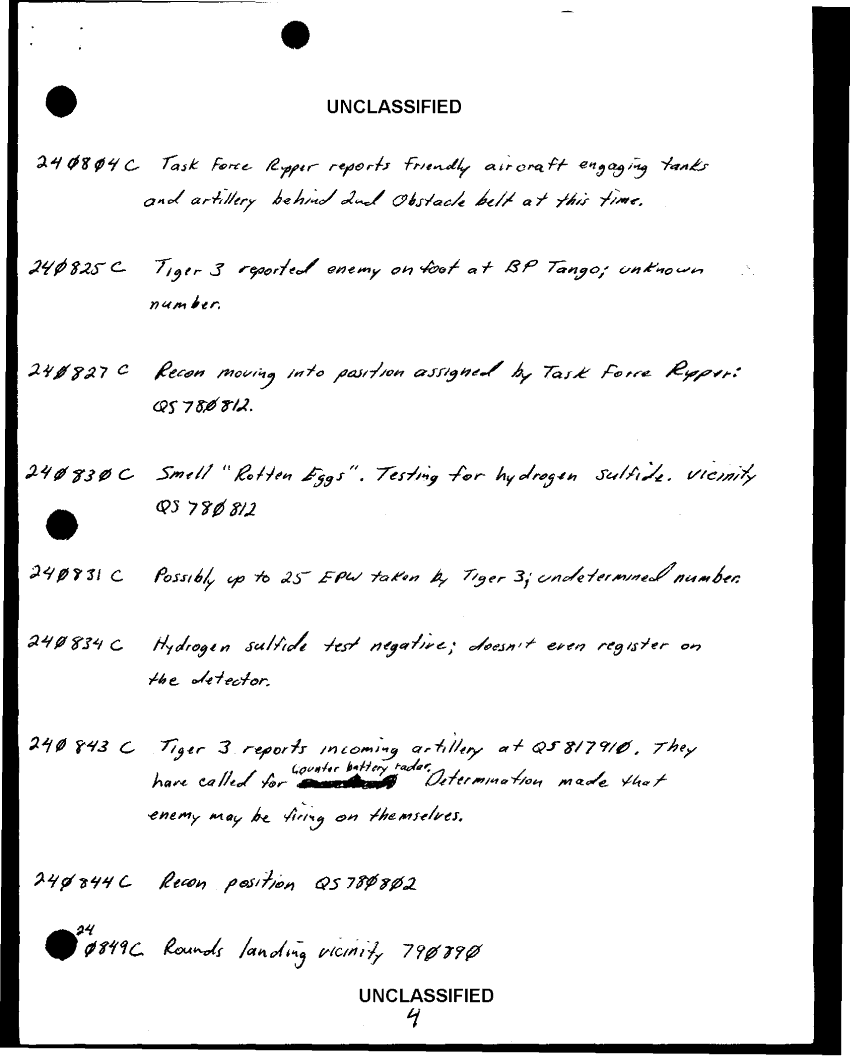 UNCLASSIFIED
24Ø8Ø4C Task Force Ripper reports friendly aircraft engaging tanks
and artillery behind 2nd Obstacle belt at this time.
24Ø825C Tiger 3 reported enemy on foot at BP Tango; unknown
number.
24Ø827C Recon moving into position assigned by Task Force Ripper:
QS 78Ø812.
24Ø83ØC Smell "Rotten Eggs". Testing for hydrogen sulfide. vicinity
QS 78Ø812
24Ø831C Possibly up to 25 EPW taken by Tiger 3; undetermined number.
24Ø834C Hydrogen sulfide test negative; doesn't even register on
the detector.
24Ø843C Tiger 3 reports incoming artillery at QS 81791Ø. They
have called for counter battery radar. Determination made that
enemy may be firing on themselves.
24Ø844C Recon position QS 78Ø8Ø2
24
Ø849C Rounds landing vicinity 79Ø89Ø
UNCLASSIFIED
4